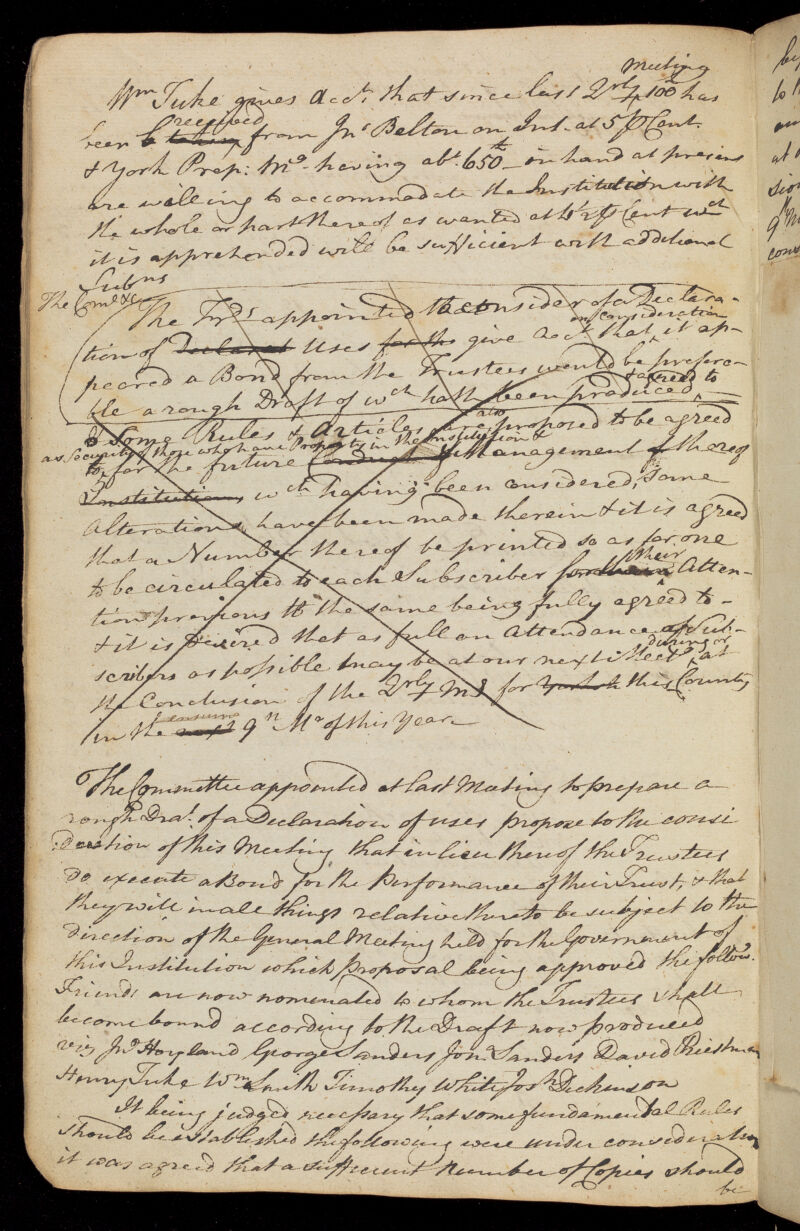 Meeting
Wm Tuke gives Acct. that since last 2rly 100£ has
received
been taken from Jno Belton on Int. at 5 ₱ Cent.
& York Prep: Mg. having abt. 650£ in hand at present
are willing to accommodate the Institution with
the whole or part thereof as wanted at ₱ Cent wch
it is apprehended will be sufficient with additional
Subns
The Comee &c
The Frds appointed to consider of a Declara-
on consideration
tion of Declarat Uses for the give acct. that it ap-
peared a Bond from the Trustees would be prefera-
& agreed to
ble a rough Draft of wch hath been produced
also
& Some Rules & Articles proposed to be agreed
as Security of those who have Property in the Institution &
to, for the future Conduct Management of thereof
Institution, wch having been considered, some
Alterations have been made therein & it is agreed
that a Number thereof be printed so as for one
their
to be circulated to each Subscriber for their Atten-
tion previous to the same being fully agreed to -
& it is desired that as full an Attendance of Sub-
during or
scribers as possible may be at our next Meetg at
the Conclusion of the 2rly Mg for York this County
ensuing
in the next 9th Mo of this Year
The Committee appointed at last Meeting to prepare a
rough Drat. of a Declaration of uses propose to the consi
deration of this Meeting that in lieu thereof the Trustees
do execute a Bond for the Performance of their Trust, & that
they will in all things relative thereto be subject to the
direction of the General Meeting held for the Government of
this Institution which Proposal being approved the follow.
Friends are now nominated to whom the Trustees shall
become bound according to the Draft now produced
viz Jno Hoyland George Sanders Jona Sanders David Priestman
Henry Tuke Wm Smith Timothy White Josh Dickinson
It being judged necessary that some fundamental Rules
should be established the following were under consideration
it was agreed that a sufficient Number of Copies should
be